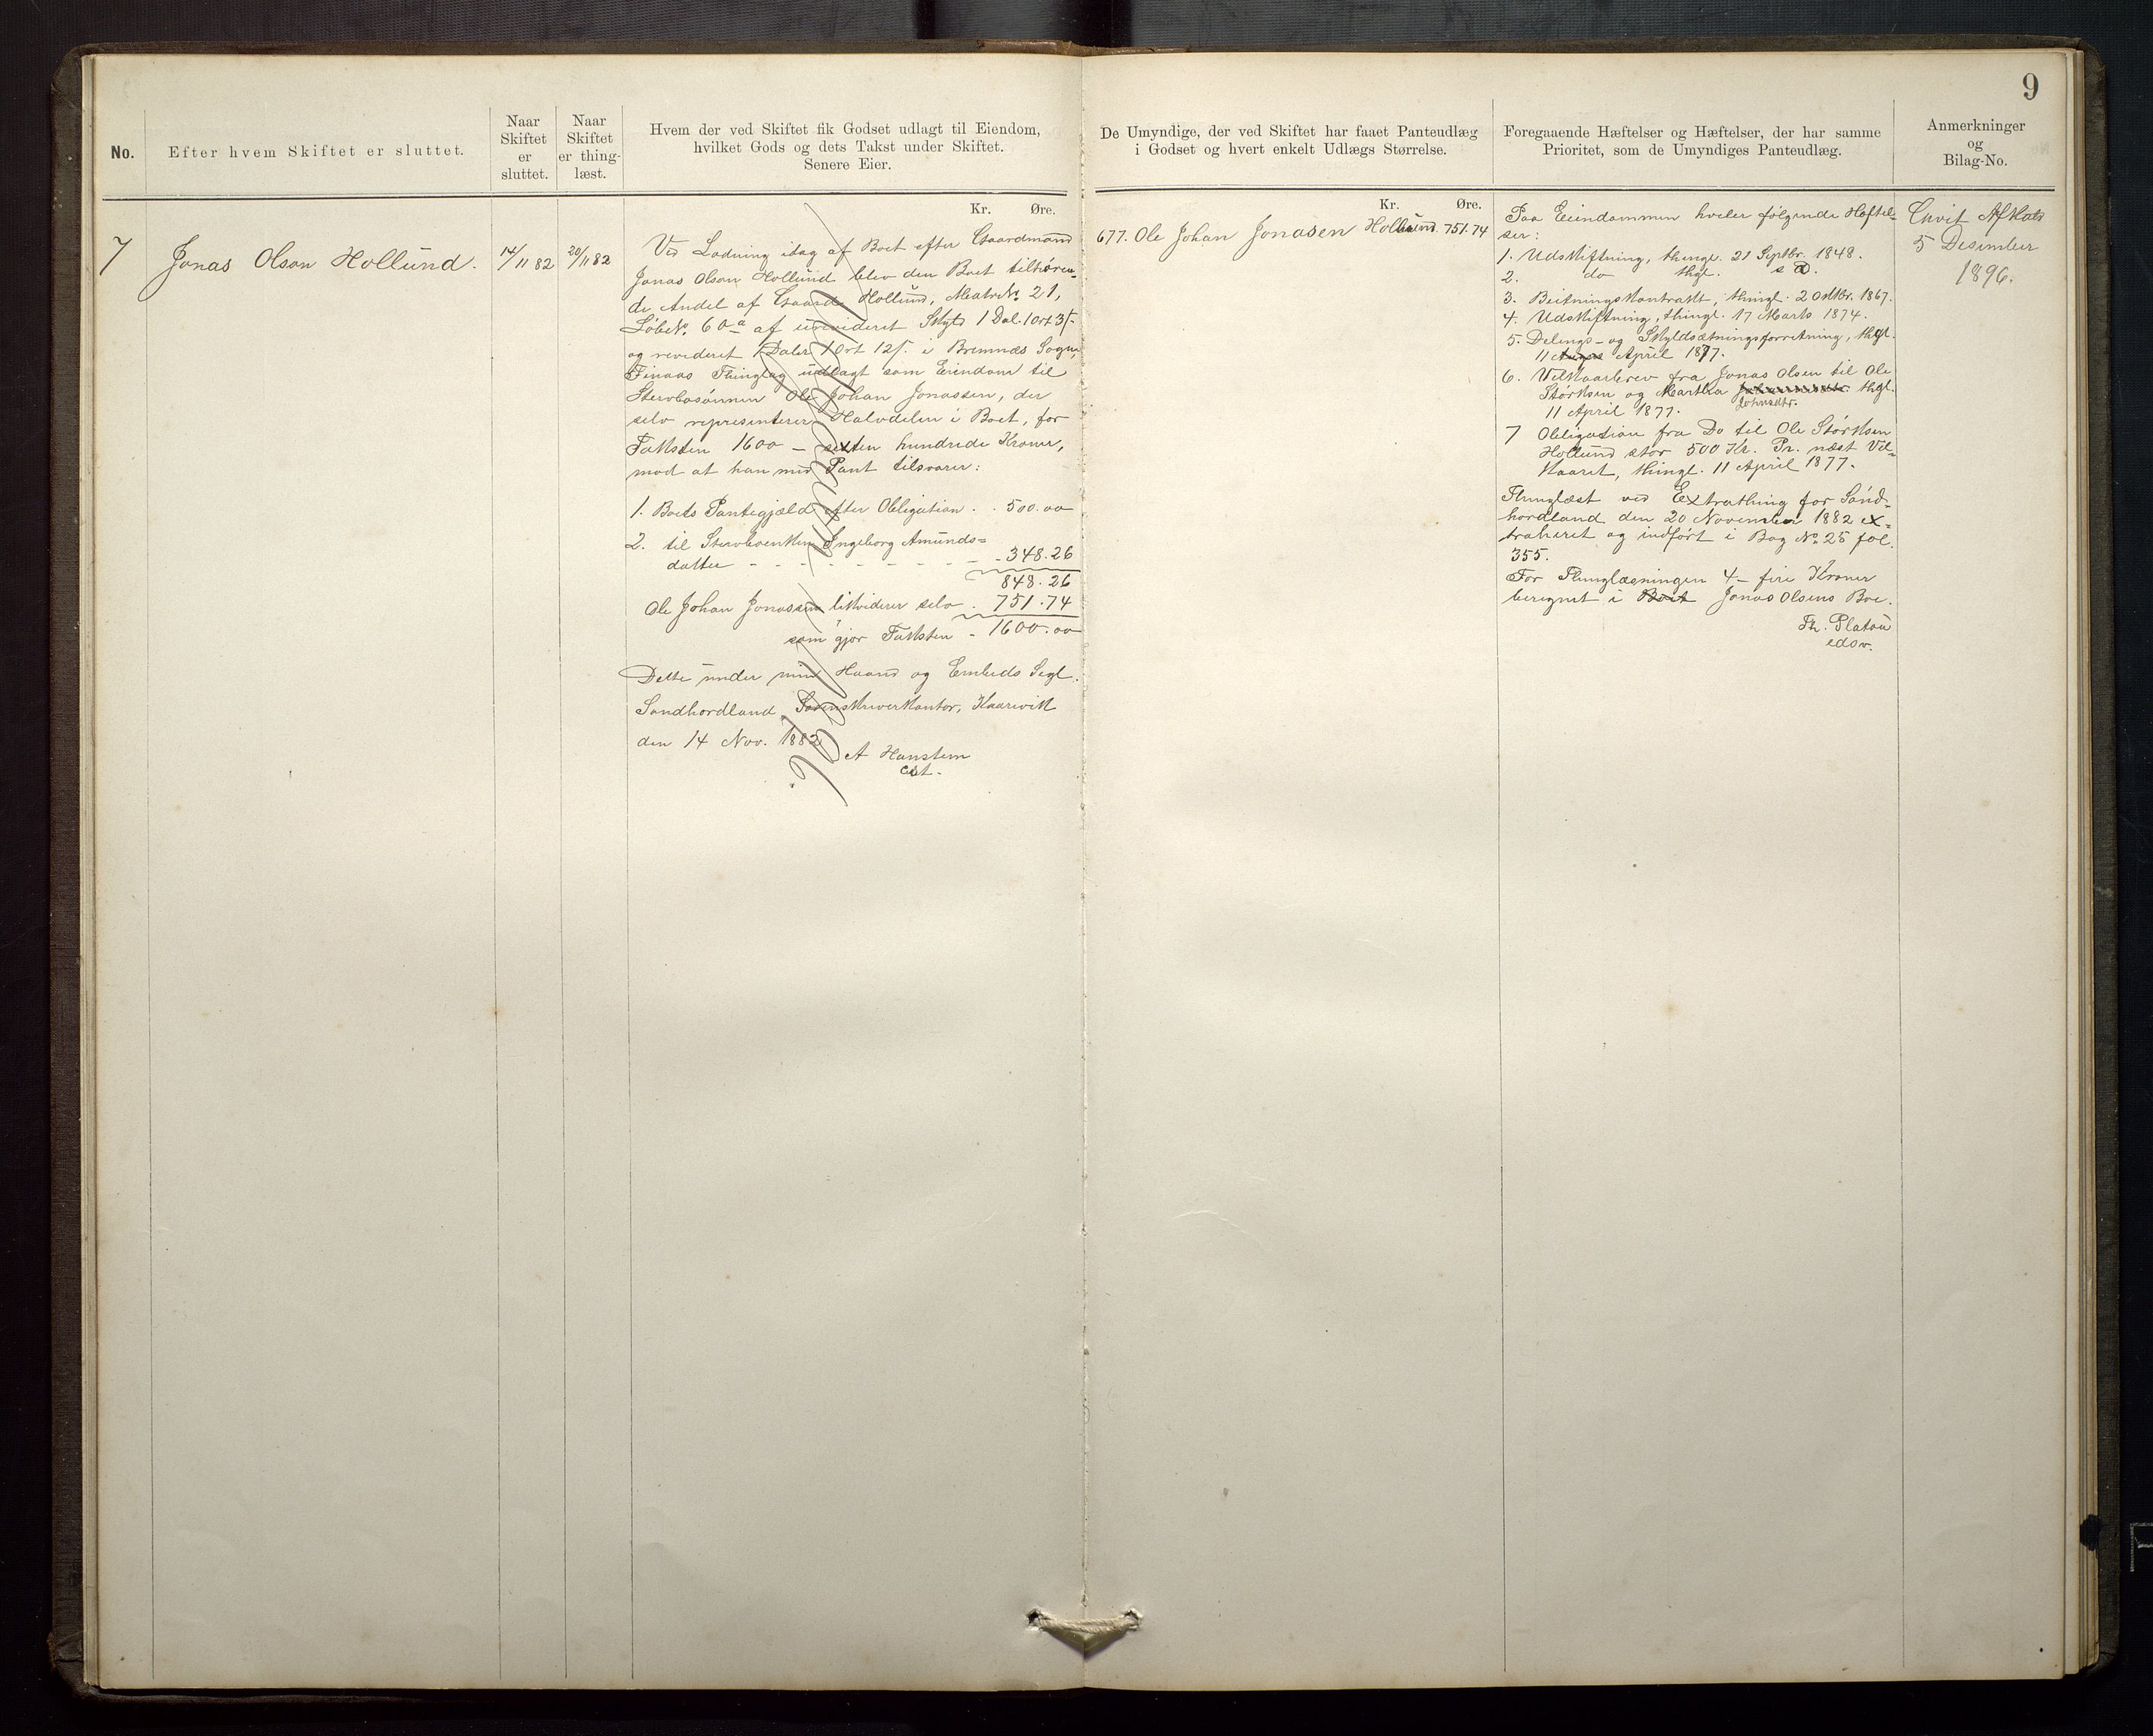 9
No.
Efter hvem Skiftet er sluttet.
Naar
Skiftet
er
sluttet.
Naar
Skiftet
er thing-
læst.
Hvem der ved Skiftet fik Godset udlagt til Eiendom,
hvilket Gods og dets Takst under Skiftet.
Senere Eier.
De Umyndige, der ved Skiftet har faaet Panteudlæg
i Godset og hvert enkelt Udlægs Størrelse.
Foregaaende Hæftelser og Hæftelser, der har samme
Prioritet, som de Umyndiges Panteudlæg.
Anmerkninger
og
Bilag-No.
7
Jonas Olson Hollund.
14/11 82
20/11 82
Kr. Øre.
Ved Lodning idag af Boet efter Gaardmand
Jonas Olson Hollund blev den Boet tilhøren-
de Andel af Gaarde Hollund, Matr№ 21,
Løbe№. 60a af urevideret Skyld 1 Dal. 1 Ort 3/-
og revideret 1 Daler 1 Ort 12/. i Bremnæs Sogn,
Finaas Thinglag udlagt som Eiendom til
Stervbosønnen Ole Johan Jonassen, der
selv representerer Halvdelen i Boet, for
Taksten 1600 – sexten hundrede Kroner,
mod at han med Pant tilsvarer:
1. Boets Pantegjæld efter Obligation . . 500.00
2. til Stervboenken Ingeborg Amunds=
datter - - - - - - - - 348.26
848.26
Ole Johan Jonassen likviderer selv . 751.74
som gjør Taksten - 1600.00
Dette under min Haand og Embeds Segl.
Sandhordland Sorenskriverkontor, Kaarevik
den 14 Nov. 1882
A Hansteen
cst.
Kr. Øre.
677. Ole Johan Jonasen Hollund. 751.74
Paa Eiendommen hviler følgende Heftel-
ser:
1. Udskiftning, thingl. 21 Septbr. 1848.
2. do thgl. s D.
3. Beitningskontrakt, thingl. 2 Oktbr. 1867.
4. Udskiftning, thingl. 17 Marts 1874.
5. Delings- og Skyldsætningsforretning, thgl.
11 April 1877.
6. Vilkaarbrev fra Jonas Olsen til Ole
Størksen og Martha thgl.
Johnsdtr.
11 April 1877.
7 Obligation fra Do til Ole Størksen
Hollund stor 500 Kr. Pr. næst Vil-
kaaret, thingl. 11 April 1877.
Thinglæst ved Extrathing for Sønd-
hordland den 20 November 1882 ex-
traheret og indført i Bog № 25 fol.
355.
For Thinglæsningen 4- fire Kroner
beregnet i Boet Jonas Olsens Boe.
Th. Platou
edsv.
Qvit Afkald
5 Desember
1896.